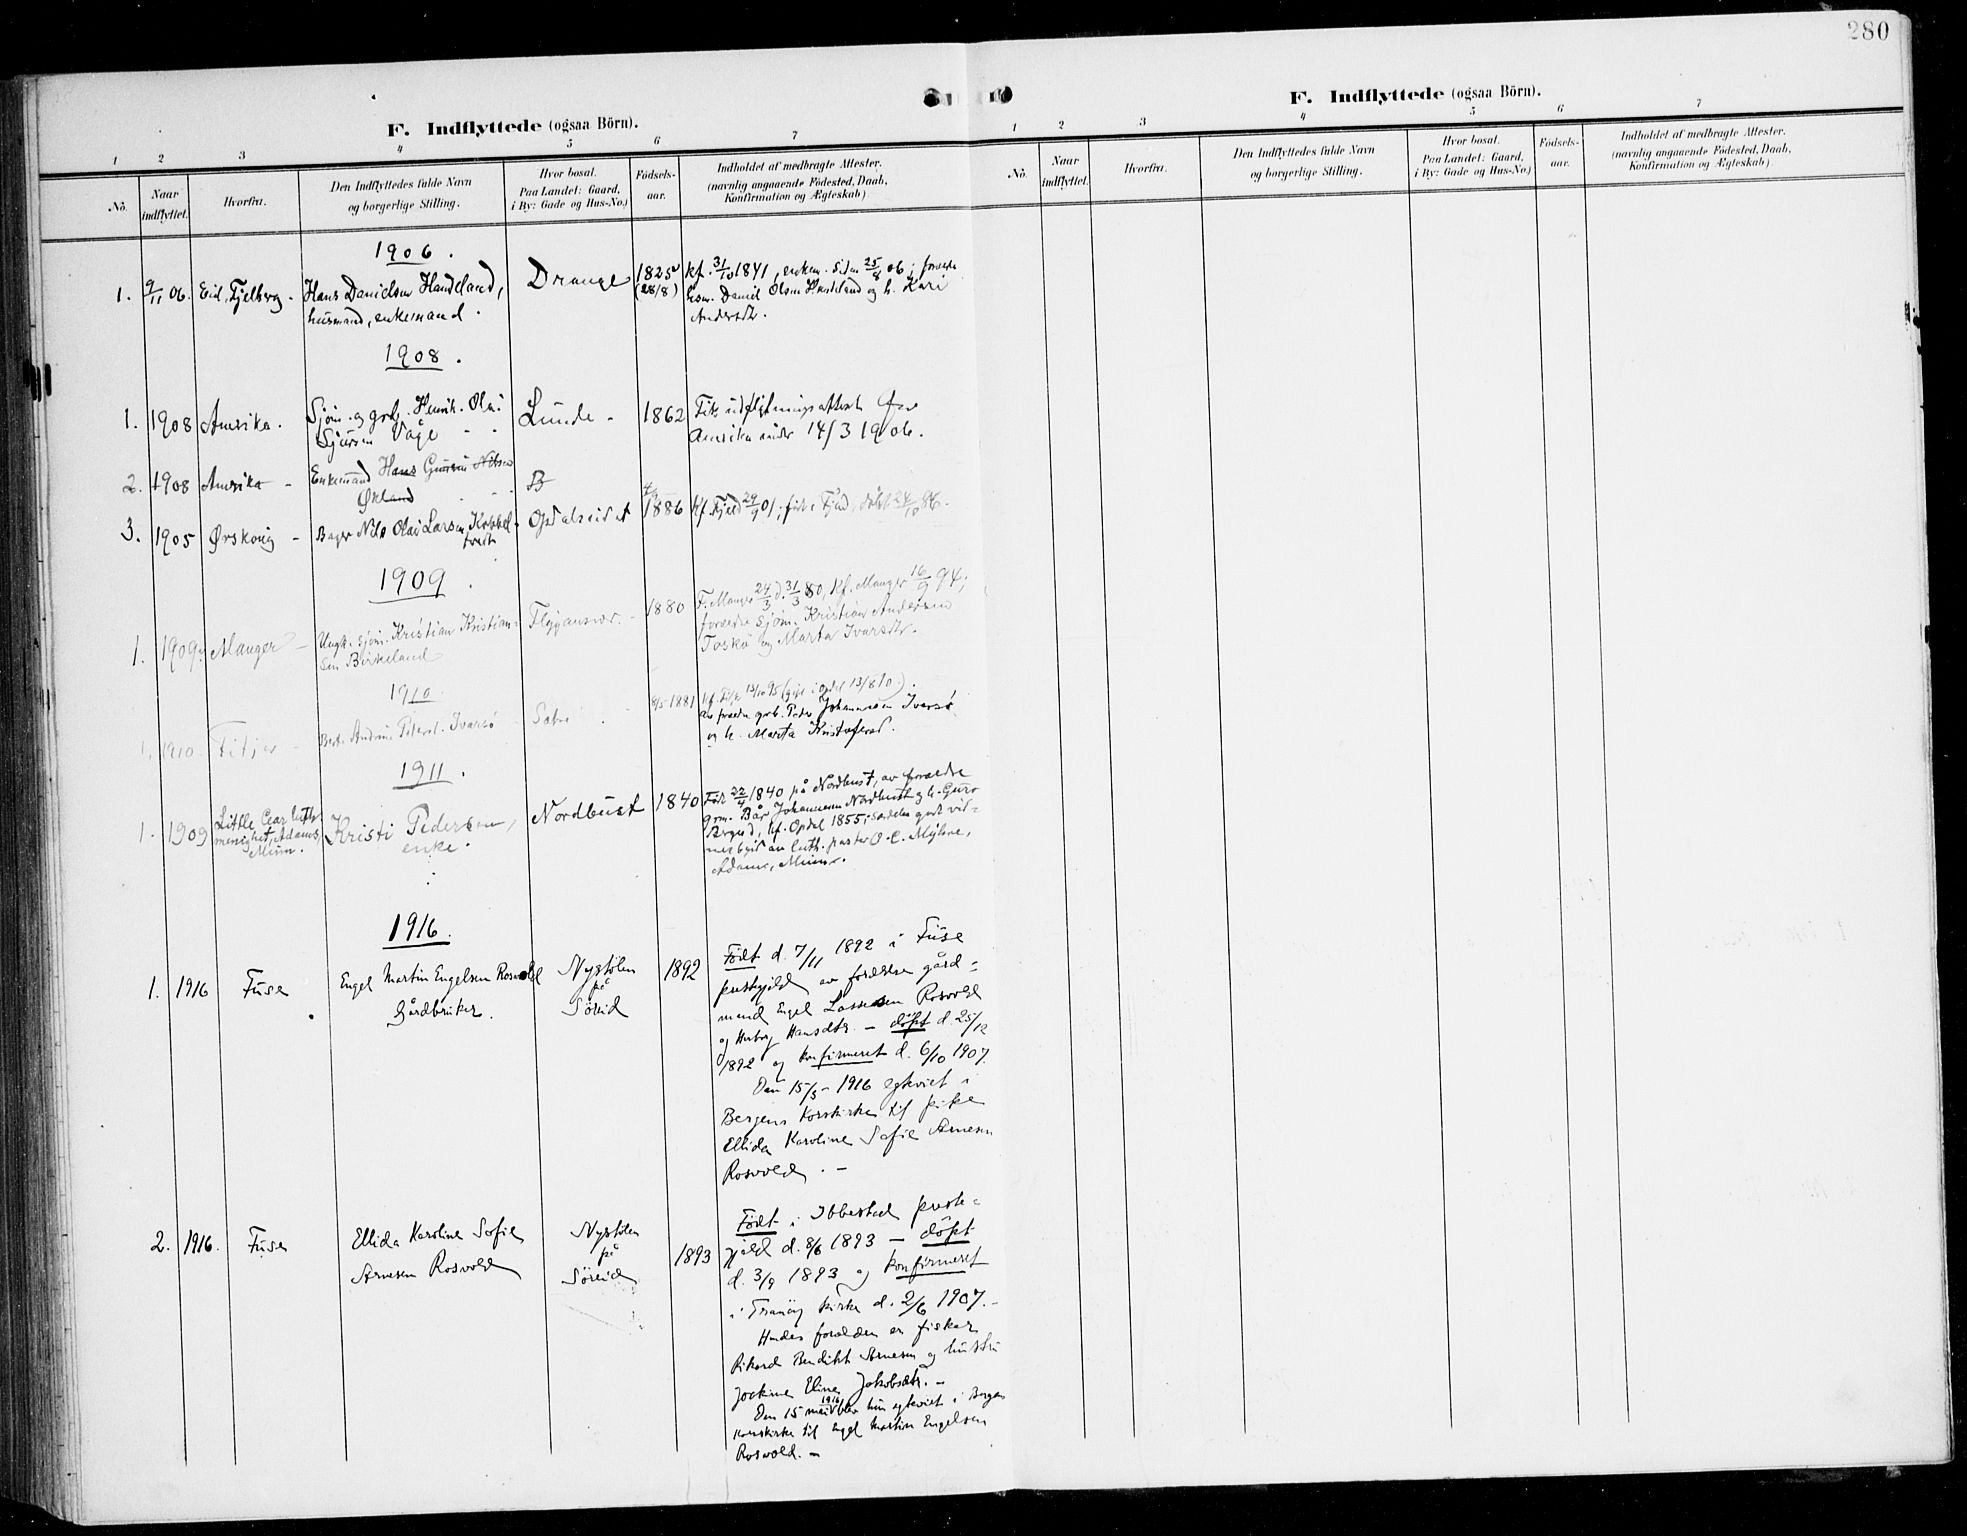 280
F. Indflyttede (ogsaa Börn).
1 2 3 4 5 6 7
No.
Naar indflyttet.
Hvorfra.
Den Indflyttedes fulde Navn
og borgerlige Stilling.
Hvor bosat.
Paa Landet: Gaard,
i By: Gade og Hus-No.)
Födsels-
aar.
Indholdet af medbragte Attester.
(navnlig angaaende Födested, Daab,
Konfirmation og Ægteskab)
1906.
1. 9/11 06. Eid, Fjelberg. Hans Danielsen Handeland,
husmand, enkemand.
Drange 1825 (28/8)
kf. 31/10 1841, enkem. siden 25/8 06; forældre
husm. Daniel Olsen Handeland og h. Kari
Andersdtr.
1908.
1. 1908 Amerika. Sjøm. og grbr. Henrik Olai
Sjursen Våge
Lunde - 1862
Fik udflytningsattest for
Amerika under 14/3 1906.
2. 1908 Amerika - Enkemand Hans Nilsen
Økland
3. 1905 Ørskoug - Bager Nils Olai Larsen
Opdalseidet 1886
kf. Fjeld 29/9 01; født i Fjeld, døbt 24/10 86.
1909.
1. 1909. Manger - Ungk. sjøm. Kristian Kristian-
sen Birkeland
Flygansvær. - 1880
F. Manger 24/3 d. 31/3 80, kf. Manger 16/9 94;
forældre sjøm. Kristian Andersen
Toskø og Marta Ivarsdtr.
1910.
1. 1910. Fitjar - Andrine Petersd. Ivarsø
1881
kf. Fitje 13/10 95 (gift i Opdal 13/8 10).
av forældre grb. Peder Johannesen Ivarsø
og h. Marta Kristofersd.
1911.
1. 1909 Little Cear luth.
menighet, Adams,
Minn.
Kristi Pedersen,
enke.
Nordhust 1840
Født 22/4 1840 på Nordhust, av forældre
grm. Bår Johannesen Nordhust og h. Guro
kf. Opdal 1855; særdeles godt vid-
nesbyrd av luth. pastor O. C. Myhre,
Adams, Minn.
1916.
1. 1916 Fuse Engel Martin Engelsen Rosvold
Gårdbruker.
Nystölen
på
Söreid
1892
Födt d. 7/11 1892 i Fuse
prestegjeld av forældre gård-
mand Engel Lassesen Rosvold
og Herborg Hansdtr. - döpt d. 25/12
1892 og konfirmeret d. 6/10 1907.
Den 15/5 - 1916 egteviet i
Bergens Korskirke til pike
Ellida Karoline Sofie Arnesen
Rosvold. -
2. 1916. Fuse Ellida Karoline Sofie
Arnesen Rosvold
Nystölen
på
Söreid
1893
Födt i Ibbestad preste-
gjeld d. 8/6 1893 - döpt
d. 3/9 1893 og konfirmeret
i Tranöy kirke d. 2/6 1907. -
Hendes forældre er fisker
Rikard Benedikt Arnesen og hustru
Jockine Eline Jakobsdtr. -
Den 15 mai 1916 blev hun egteviet i Bergens
Korskirke til Engel Martin Engelsen
Rosvold. -
F. Indflyttede (ogsaa Börn).
1 2 3 4 5 6 7
No.
Naar indflyttet.
Hvorfra.
Den Indflyttedes fulde Navn
og borgerlige Stilling.
Hvor bosat.
Paa Landet: Gaard,
i By: Gade og Hus-No.)
Födsels-
aar.
Indholdet af medbragte Attester.
(navnlig angaaende Födested, Daab,
Konfirmation og Ægteskab)